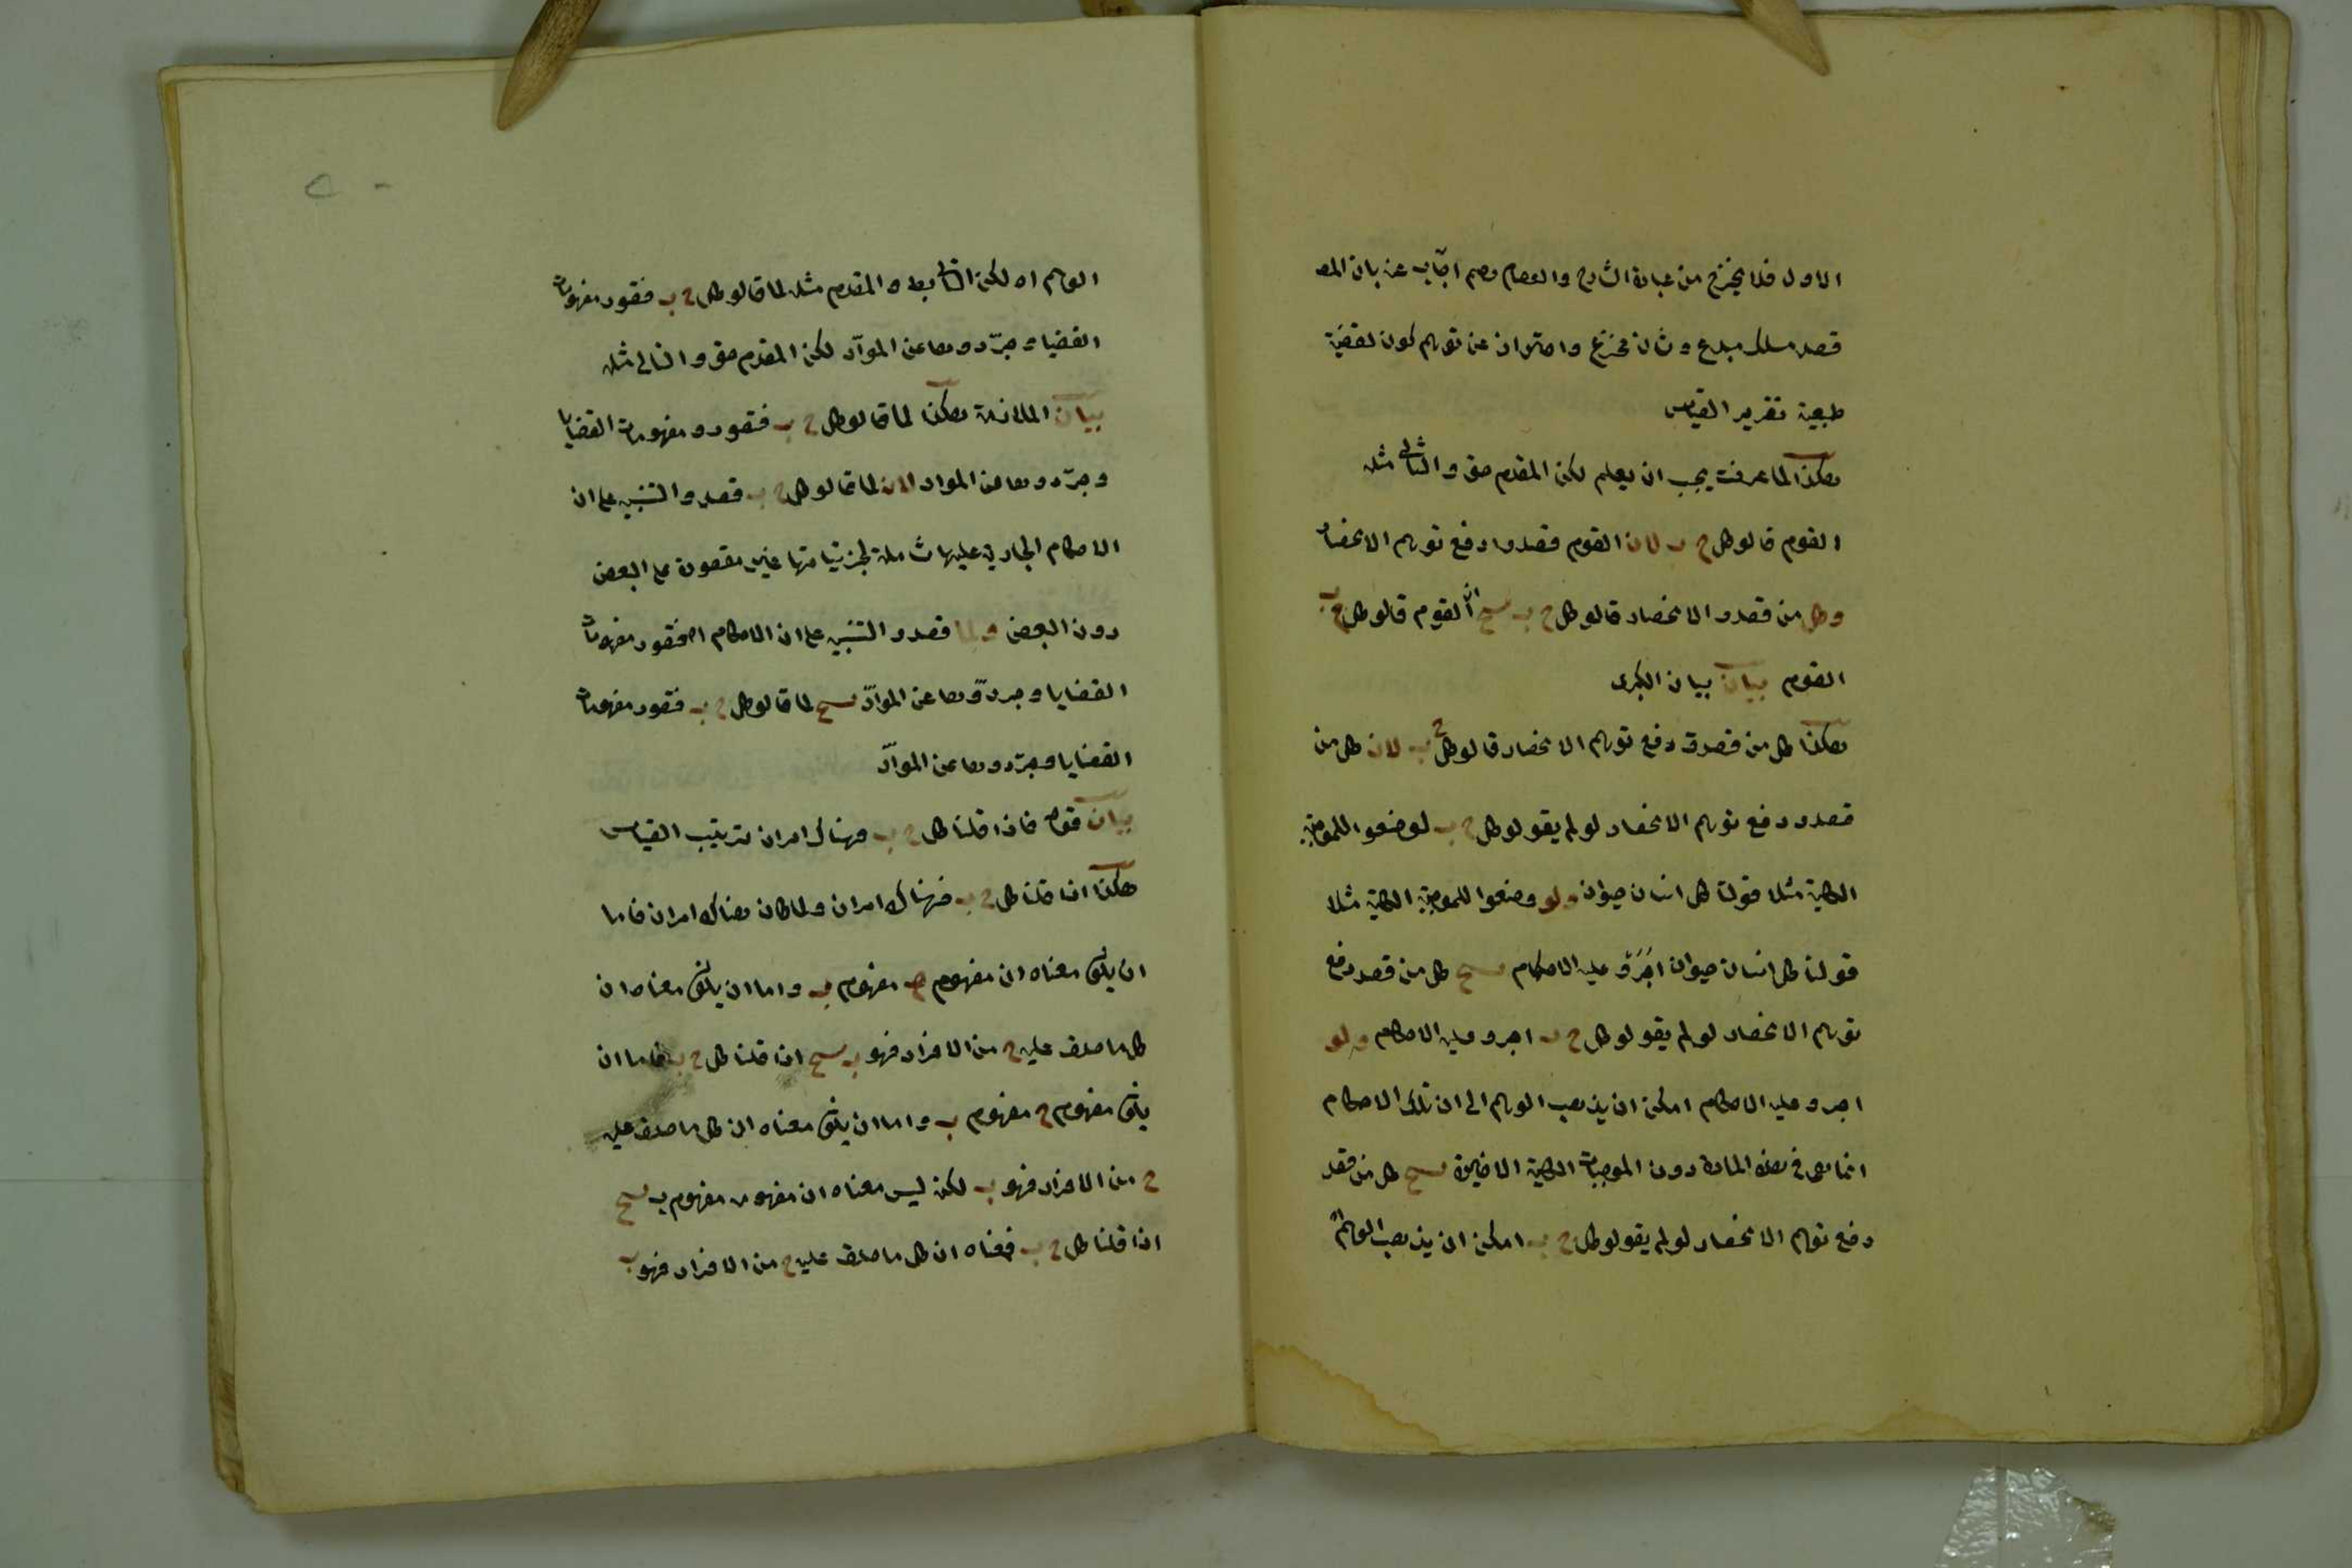 الاول فلا يخرج من عبارة الشارح والعصام ومم اجاب عنه بان المصـ
قصد مسلك مبدع وشان مخترع واحتوان عن توهم كون لقضية
طبعية تقرير القياس
هكذا لما عرفت يجب ان يعلم لكن المقدم حق والتالى مثله
القوم قالو كل ج ب لان القوم قصدوا دفع توهم الانحصار
وكل من قصدو الانحصار قالو كل ج ب ينتج ان القوم قالو كل ج ب
القوم بيان بيان الكبرى
هكذا كل من قصدو دفع توهم الانحصار قالو كل ج ب لان كل من
قصدو دفع توهم الانحصار لو لم يقولو كل ج ب لوضعوا للموجبة
الكلية مثلا قولنا كل انسان حيوان ولو وضعوا للموجبة الكلية مثلا
قولنا كل انسان حيوان اجروا عليه الاحكام ينتج كل من قصد دفع
توهم الانحصار لو لم يقولو كل ج ب اجرو عليه الاحكام ولو
اجرو عليه الاحكام امكن ان يذهب الوهم الى ان تلك الاحكام
انما هى فى هذه المادة دون الموجبات الكلية الاخيرة ينتج كل من قصد
دفع توهم الانحصار لو لم يقولو كل ج ب امكن ان يذهب الوهم
الوهم اه لكن التالى بط والمقدم مثله لما قالو كل ج ب فتصور مفهومات
القضيا وجردوها عن المواد لكن المقدم حق والتالى مثله
بيان الملازمة هكذا لما قالو كل ج ب فتصورو مفهومات القضايا
وجردوها عن المواد لان لما قالو كل ج ب قصدو التنبيه على ان
الاحكام الجارية عليها شاملة لجزئياتها غير مقصورة على البعض
دون البعض ولما قصدو التنبيه على ان الاحكام اه فتصور مفهومات
القضايا وجردوها عن المواد ينتج لما قالو كل ج ب فتصور مفهومات
القضايا وجردوها عن المواد
بيان قوله فاذا قلنا كل ج ب فهناك امران ترتيب القياس
هكذا اذا قلنا كل ج ب فهناك امران ولما كان هناك امران فاما
ان يكون معناه ان مفهوم ج مفهوم ب واما ان يكون معناه ان
كل ما صدق عليه ج من الافراد فهو ب ينتج اذا قلنا كل ج ب فاما ان
يكون مفهوم ج مفهوم ب واما ان يكون معناه ان كل ما صدق عليه
ج من الافراد فهو ب لكن ليس معناه ان مفهوم مفهوم ب ينتج
اذا قلنا كل ج ب فمعناه ان كل ما صدق عليه ج من الافراد فهو ب